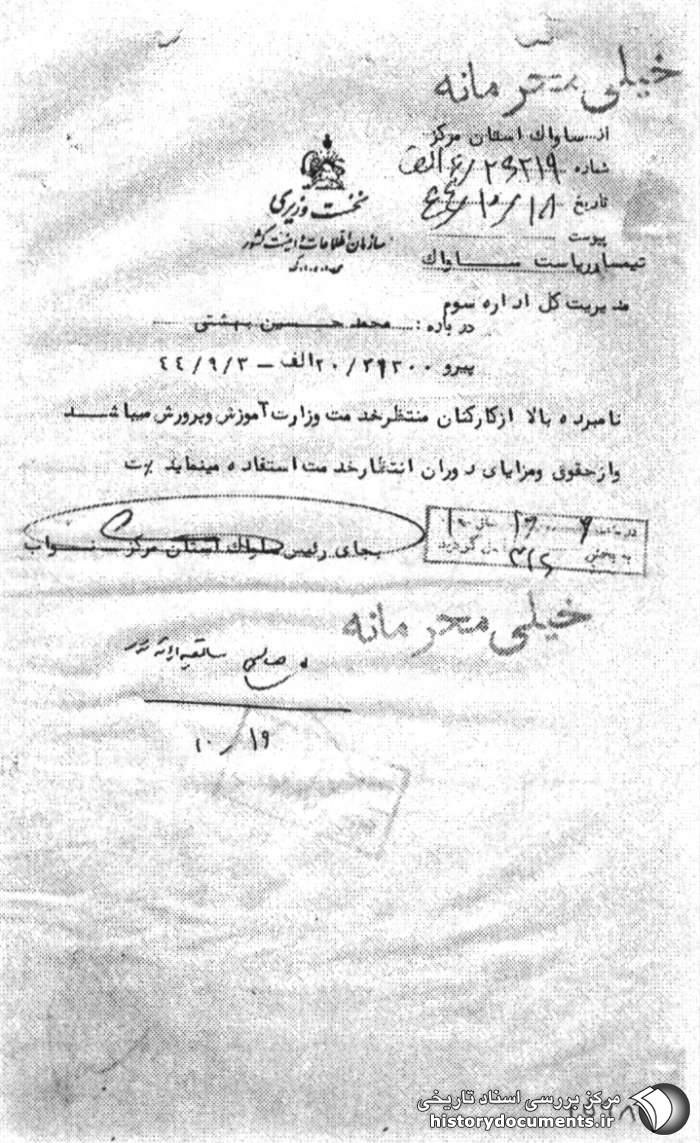 خیلی محرمانه
از ساواك استان مركز
شماره ۲۵۲۱۹/ الف
تاریخ ۱۸/۱۰/۴۴
پیوست
نخست وزیری
سازمان اطلاعات و امنیت کشور
س.ا.و.ا.ک
تیمسار ریاست ساواك
مدیریت كل اداره سوم
درباره : محمد حسین بهشتی
پیرو ۲۰/۳۹۳۰۰ الف – ۴۴/۹/۳
نامبرده بالا ازکارکنان منتظرخدمت وزارت آموزش وپرورش میباشد
وازحقوق ومزایای دوران انتظارخدمت استفاده مینماید ٪ت
بجای رئیس ساواك استان مركز نواب
در ساعت
به بخش ۳۱۶ گردید
خیلی محرمانه
سابقه ارائه شود
۱۰/۱۹
مرکز بررسی اسناد تاریخی
historydocuments.ir